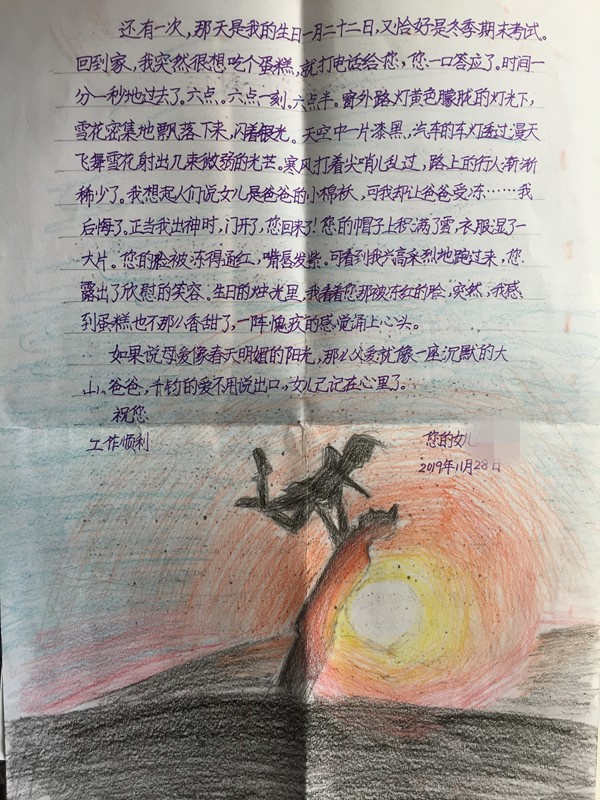 还有一次,那天是我的生日一月二十二日,又恰好是冬季期末考试。
回到家,我突然很想吃个蛋糕,就打电话给您,您一口答应了。时间一
分一秒地过去了。六点。六点一刻。六点半。窗外路灯黄色朦胧的灯光下,
雪花密集地飘落下来,闪着银光。天空中一片漆黑,汽车的车灯透过漫天
飞舞雪花射出几束微弱的光芒。寒风打着尖哨儿乱过,路上的行人渐渐
稀少了。我想起人们说女儿是爸爸的小棉袄,可我却让爸爸受冻……我
后悔了。正当我出神时,门开了,您回来了!您的帽子上积满了雪,衣服湿了一
大片。您的脸被冻得通红,嘴唇发紫。可看到我兴高采烈地跑过来,您
露出了欣慰的笑容。生日的烛光里,我看着您那被冻红的脸,突然,我感
到蛋糕也不那么香甜了,一阵愧疚的感觉涌上心头。
如果说母爱像春天明媚的阳光,那么父爱就像一座沉默的大
山。爸爸,千钧的爱不用说出口,女儿已记在心里了。
祝您
工作顺利
您的女儿
2019年11月28日